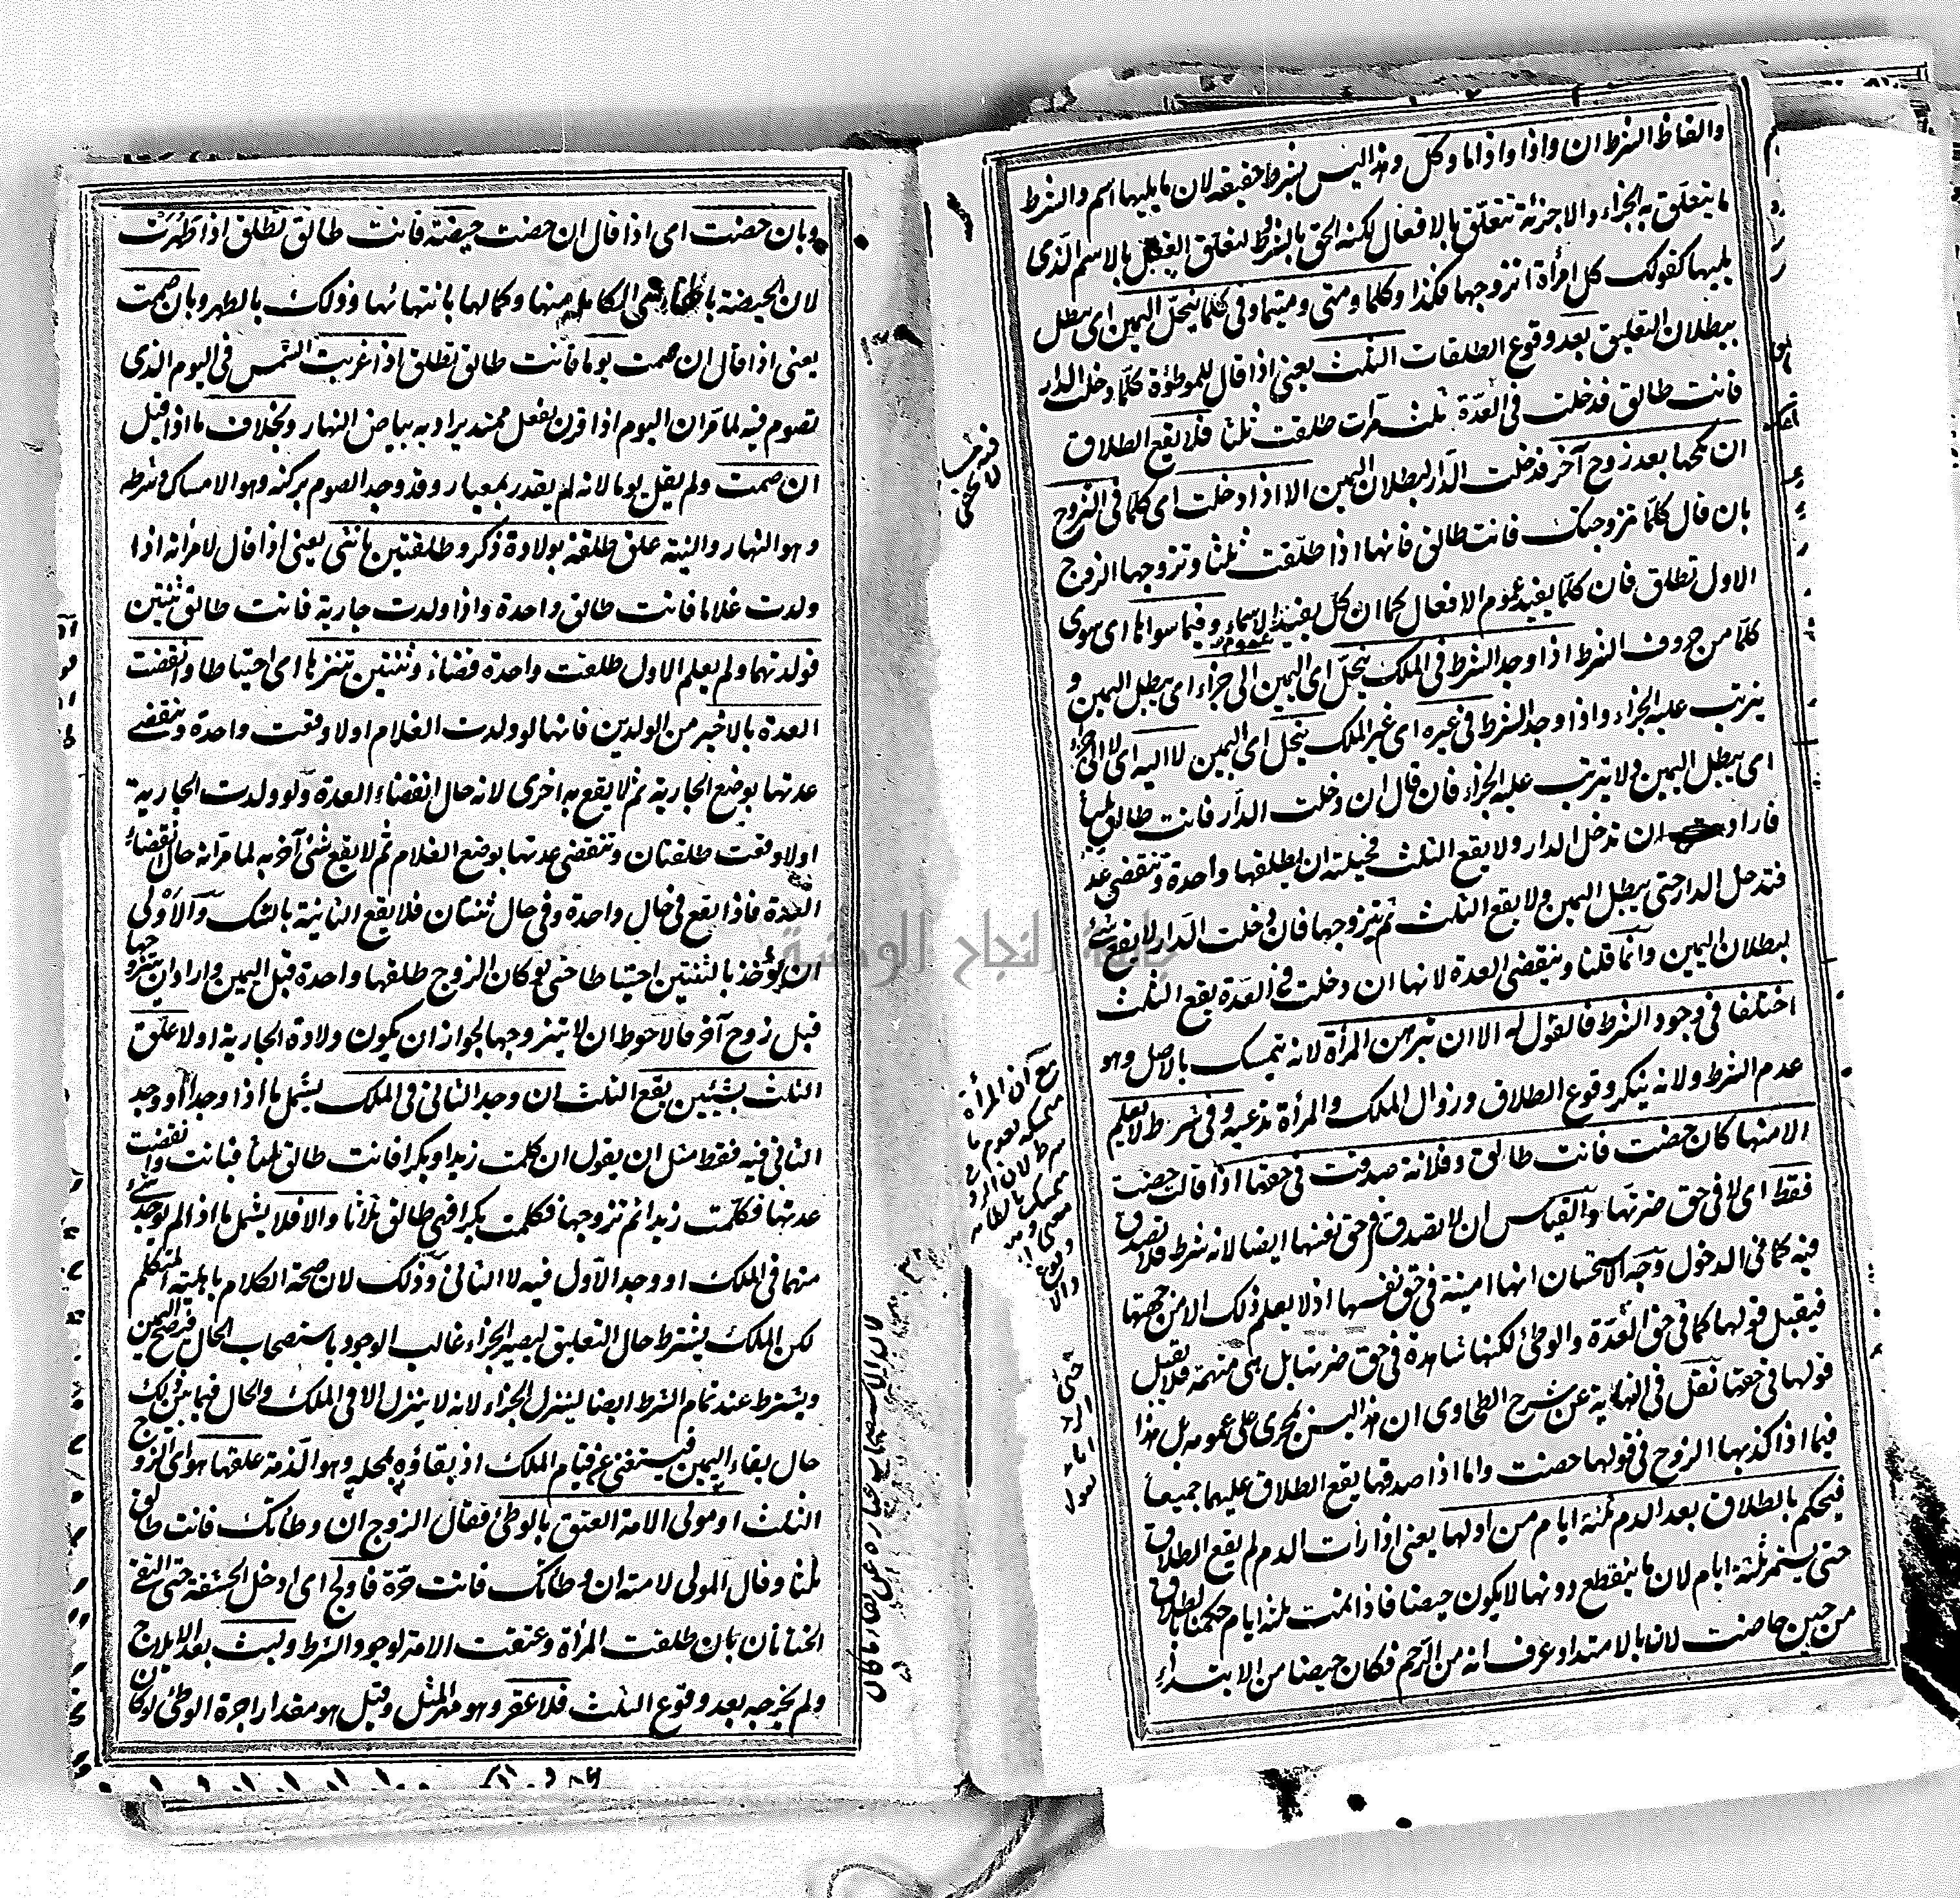 والفاظ الشرط ان واذا واذاما وكل وهذا ليس بشرط حقيقة لان ما يليها اسم والشرط
ما يتعلق به الجزاء والاجزئة تتعلق بالافعال لكنه الحق بالشرط لتعلق الفعل بالاسم الذى
يليها كقولك كل امرأة اتزوجها فكذا وكلما ومتى ومتيما وفى كلما ينحل اليمين اى يبطل
ببطلان التعليق بعد وقوع الطلقات الثلث يعنى اذا قال للموطؤة كلما دخلت الدار
فانت طالق فدخلت فى العدة ثلث مرات طلقت ثلثا فلا يقع الطلاق
ان نكحها بعد زوج آخر فدخلت الدار لبطلان اليمين الا اذا دخلت اى كلما فى التزوج
بان قال كلما تزوجتك فانت طالق فانها اذا طلقت ثلثا وتزوجها الزوج
الاول تطلق فان كلما يفيد عموم الافعال كما ان كل يفيد عموم الاسماء وفيما سواها اى سوى
كلما من حروف الشرط اذا وجد الشرط فى الملك ينحل اى اليمين الى جزاء اى يبطل اليمين و
يترتب عليه الجزاء واذا وجد الشرط فى غيره اى غير الملك ينحل اى اليمين لا اليه اى لا الى الجزاء
اى يبطل اليمين ولا يترتب عليه الجزاء فان قال ان دخلت الدار فانت طالق ثلثا
فاراد ان تدخل الدار ولا يقع الثلث فحيلته ان يطلقها واحدة وتنقضى عدتها
فتدخل الدار حتى يبطل اليمين ولا يقع الثلث ثم يتزوجها فان دخلت الدار لا يقع شئ
لبطلان اليمين وانما قلنا وينقضى العدة لانها ان دخلت فى العدة يقع الثلث
اختلفا فى وجود الشرط فالقول له الا ان تبرهن المرأة لانه يتمسك بالاصل وهو
عدم الشرط ولانه ينكر وقوع الطلاق وزوال الملك والمرأة تدعيه وفى شرط لا يعلم
الا منها كان حضت فانت طالق وفلانة صدقت فى حقها اذا قالت حضت
فقط اى لا فى حق ضرتها والقياس ان لا تصدق فى حق نفسها ايضا لانه شرط فلا تصدق
فيه كما فى الدخول وجه الاستحسان انها امينة فى حق نفسها اذ لا يعلم ذلك الا من جهتها
فيقبل قولها كما فى حق العدة والوطئ لكنها شاهدة فى حق ضرتها بل هى متهمة فلا يقبل
قولها فى حقها نقل فى النهاية عن شرح الطحاوى ان هذا ليس بمجرى على عمومه بل هذا
فيما اذا كذبها الزوج فى قولها حضت واما اذا صدقها يقع الطلاق عليهما جميعا
فيحكم بالطلاق بعد الدم ثلثة ايام من اولها يعنى اذا رأت الدم لم يقع الطلاق
حتى يستمر ثلثة ايام لان ما ينقطع دونها لا يكون حيضا فاذا تمت ثلثة ايام حكمنا بالطلاق
من حين حاضت لانا بالامتداد عرف انه من الرحم فكان حيضا من الابتداء
وبان حضت اى اذا قال ان حضت حيضة فانت طالق تطلق اذا طهرت
لان الحيضة بالهاء هى الكامل منها وكمالها بانتهائها وذلك بالطهر وبان صمت
يعنى اذا قال ان صمت يوما فانت طالق تطلق اذا غربت الشمس فى اليوم الذى
تصوم فيه لما مر ان اليوم اذا قرن بفعل ممتد يراد به بياض النهار وبخلاف ما اذا قيل
ان صمت ولم يقل يوما لانه لم يقدر بمعيار وقد وجد الصوم بركنه وهو الامساك وشرطه
وهو النهار والنية علق طلقة بولادة ذكر وطلقتين بانثى يعنى اذا قال لامرأته اذا
ولدت غلاما فانت طالق واحدة واذا ولدت جارية فانت طالق ثنتين
فولدتهما ولم يعلم الاول طلقت واحدة قضاء وثنتين تنزها اى احتياطا وانقضت
العدة بالاخير من الولدين فانها لو ولدت الغلام اولا وقعت واحدة وتنقضى
عدتها بوضع الجارية ثم لا يقع به اخرى لانه حال انقضاء العدة ولو ولدت الجارية
اولا وقعت طلقتان وتنقضى عدتها بوضع الغلام ثم لا يقع شئ آخر به لما مر انه حال انقضاء
العدة فاذا يقع فى حال واحدة وفى حال ثنتان فلا يقع الثانية بالشك والاولى
ان يؤخذ بالثنتين احتياطا حتى لو كان الزوج طلقها واحدة قبل اليمين واراد ان يتزوجها
قبل زوج آخر فالاحوط ان لا يتزوجها لجواز ان يكون ولادة الجارية اولا علق
الثلث بشيئين يقع الثلث ان وجد الثانى فى الملك يشمل ما اذا وجدا او وجد
الثانى فيه فقط مثل ان يقول ان كلمت زيدا وبكرا فانت طالق ثلثا فبانت وانقضت
عدتها فكلمت زيدا ثم تزوجها فكلمت بكرا فهى طالق ثلاثا والا فلا يشمل ما اذا لم يوجد شئ
منهما فى الملك او وجد الاول فيه لا الثانى وذلك لان صحة الكلام باهلية المتكلم
لكن الملك يشترط حال التعليق ليصير الجزاء غالب الوجود باستصحاب الحال فيصح اليمين
ويشترط عند تمام الشرط ايضا لينزل الجزاء لانه لا ينزل الا فى الملك والحال فيما بين ذلك
حال بقاء اليمين فيستغنى عن قيام الملك اذ بقاؤه بمحله وهو الذمة علقها هو اى الزوج
الثلث او مولى الامة العتق بالوطئ فقال الزوج ان وطأتك فانت طالق
ثلثا وقال المولى لامته ان وطأتك فانت حرة فاولج اى ادخل الحشفة حتى التقى
الختانان بان طلقت المرأة وعتقت الامة لوجود الشرط ولبث بعد الايلاج
ولم يخرجه بعد وقوع الثلث فلا عقر وهو مهر المثل وقيل هو مقدار اجرة الوطئ لو كان
جامعة النجاح الوطنية